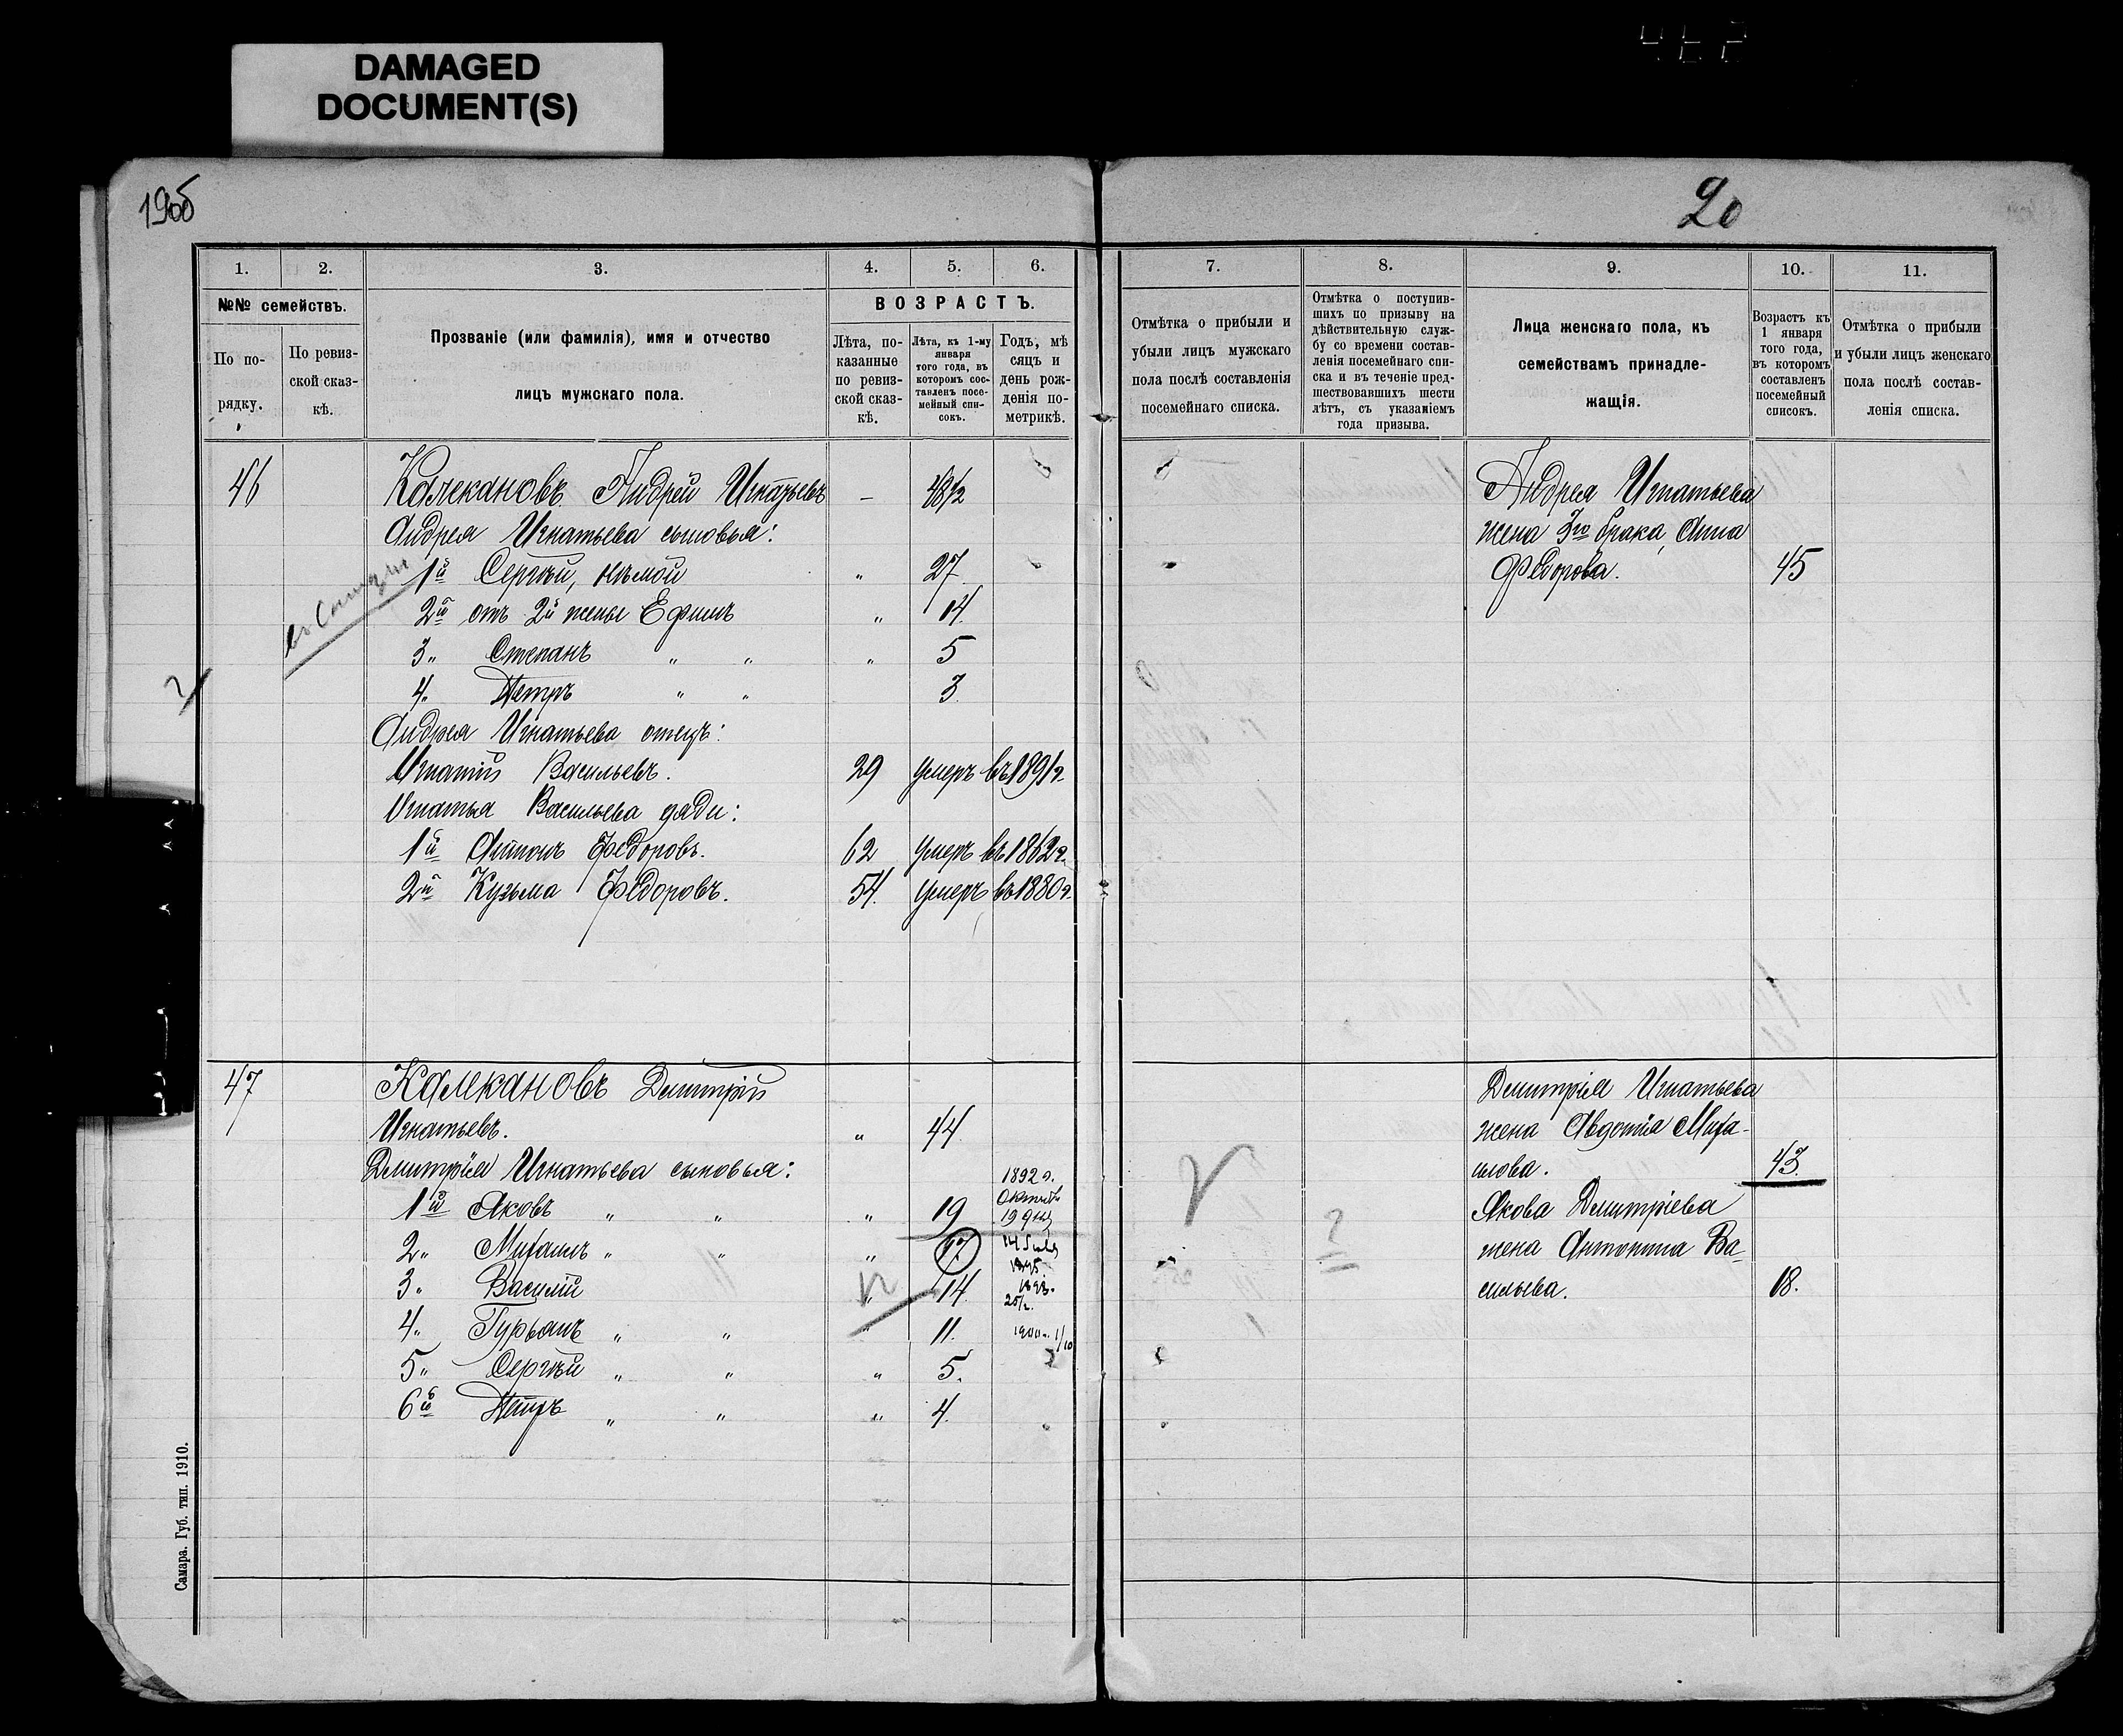 DAMAGED
DOCUMENT(S)
19об
20
1.
2.
3.
4.
5.
6.
7.
8.
9.
10.
11.
№№ семействъ.
По по-
рядку.
По ревиз-
ской сказ-
кѣ.
Прозваніе (или фамилія), имя и отчество
лицъ мужскаго пола.
ВОЗРАСТЪ.
Лѣта, по-
казанные
по ревиз-
ской сказ-
кѣ.
Лѣта, къ 1-му
января
того года, въ
которомъ сос-
тавленъ посе-
мейный спи-
сокъ.
Годъ, мѣ
сяцъ и
день рож-
денія по-
метрикѣ.
Отмѣтка о прибыли и
убыли лицъ мужскаго
пола послѣ составленія
посемейнаго списка.
Отмѣтка о поступив-
шихъ по призыву на
дѣйствительную служ-
бу со времени состав-
ленія посемейнаго спи-
ска и въ теченіе пред-
шествовавшихъ шести
лѣтъ, съ указаніемъ
года призыва.
Лица женскаго пола, къ
семействамъ принадле-
жащія.
Возрастъ къ
1 января
того года,
въ которомъ
составленъ
посемейный
списокъ.
Отмѣтка о прибыли
и убыли лицъ женскаго
пола послѣ состав-
ленія списка.
46 Калекановъ Андрей Игнатьевъ — 48½ Андрея Игнатьева
Андрея Игнатьева сыновья: жена 3го брака, Анна
1й Сергѣй, нѣмой " 27 Федорова. 45
2й отъ 2й жены Ефимъ " 14.
3" Степанъ " " " 5
4." Петръ " " 3
Андрея Игнатьева отецъ:
Игнатій Васильевъ. 29 умеръ въ 1891 г.
Игнатья Васильева дяди:
1й Антонъ Федоровъ. 62 умеръ въ 1862 г.
2й Кузьма Федоровъ. 54. умеръ въ 1880 г.
47 Калекановъ Дмитрій Дмитрія Игнатьева
Игнатьевъ. " 44 жена Авдотья Михай-
Дмитрія Игнатьева сыновья: лова. 43.
1й Яковъ " " " 19 1892 г. Октяб. 19 дня Якова Дмитріева
2" Михаилъ " " " 17 жена Антонина Ва-
3" Василій " 14 сильева. 18.
4." Гурьянъ " " " 11. 1900 г. 1/10
5" Сергѣй " " " 5.
6й Петръ " " " 4.
Самара. Губ. тип. 1910.